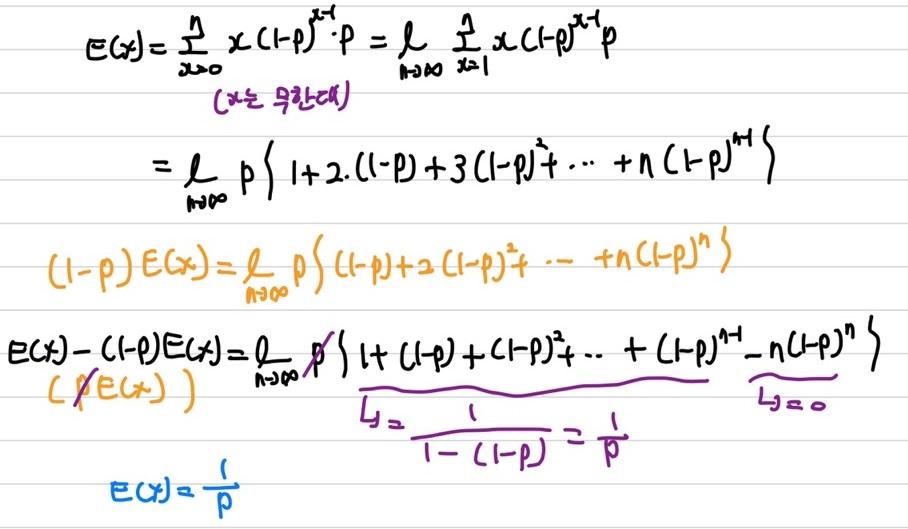 E(x) = Σ_{x=0}^{n} x(1-p)^{x-1}·p = l_{n→∞} Σ_{x=1}^{n} x(1-p)^{x-1} p
(x는 무한대)
= l_{n→∞} p{ 1+2·(1-p)+3(1-p)²+ ··· +n(1-p)^{n-1} }
(1-p)E(x) = l_{n→∞} p{ (1-p)+2(1-p)²+ ··· +n(1-p)^n }
E(x)-(1-p)E(x) = l_{n→∞} p{ 1+(1-p)+(1-p)²+ ·· +(1-p)^{n-1} -n(1-p)^n }
(pE(x))
↳ = 1/(1-(1-p)) = 1/p
↳ = 0
E(x) = 1/p